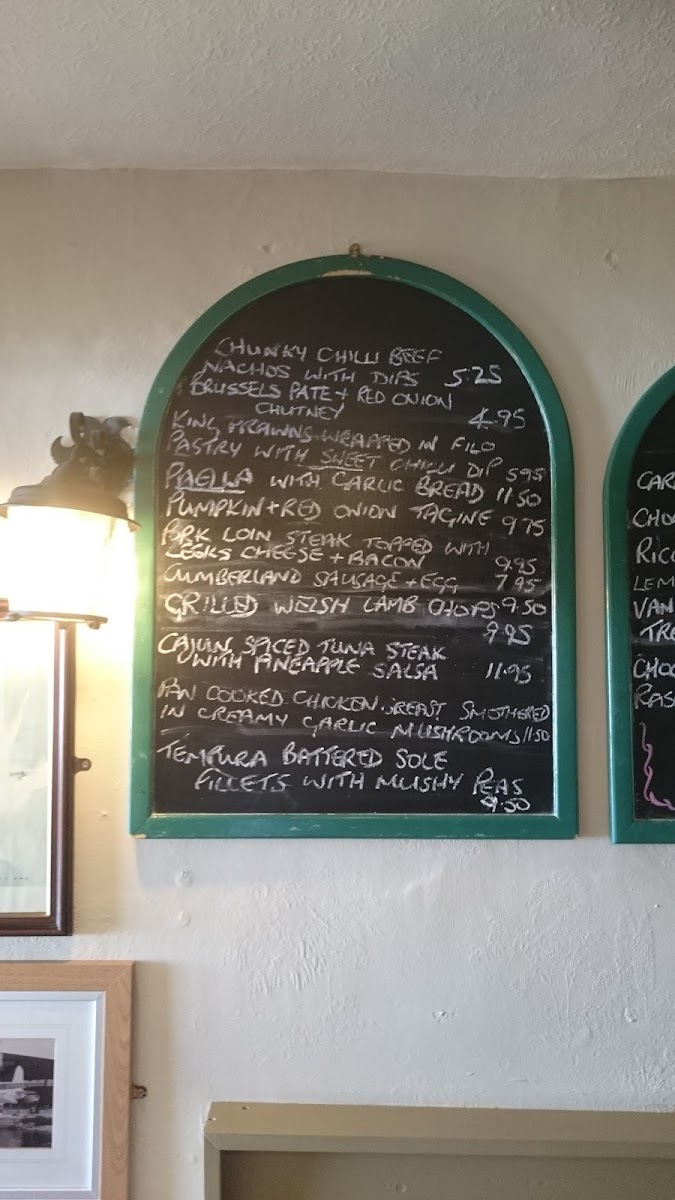 CHUNKY CHILLI BEEF
NACHOS WITH DIPS 5.25
BRUSSELS PATE + RED ONION
CHUTNEY 4.95
KING PRAWNS WRAPPED IN FILO
PASTRY WITH SWEET CHILLI DIP 5.95
PAELLA WITH GARLIC BREAD 11.50
PUMPKIN + RED ONION TAGINE 9.75
PORK LOIN STEAK TOPPED WITH
LEEKS CHEESE + BACON 9.95
CUMBERLAND SAUSAGE + EGG 7.95
GRILLED WELSH LAMB CHOPS 9.50
9.95
CAJUN SPICED TUNA STEAK
WITH PINEAPPLE SALSA 11.95
PAN COOKED CHICKEN BREAST SMOTHERED
IN CREAMY GARLIC MUSHROOMS 11.50
TEMPURA BATTERED SOLE
FILLETS WITH MUSHY PEAS
9.50
CAR
CHO
RIC
LEM
VAN
TRE
CHOC
RAS